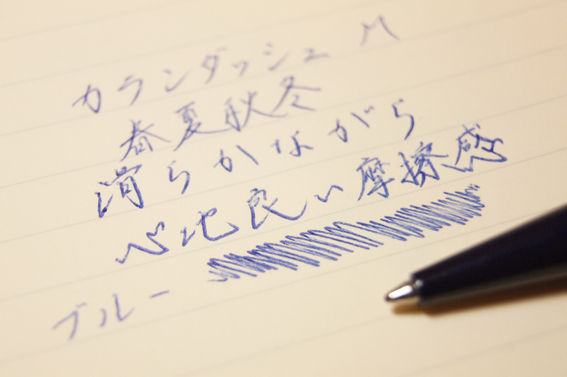 カランダッシュ M
春夏秋冬
滑らかながら
心地良い摩擦感
ブルー